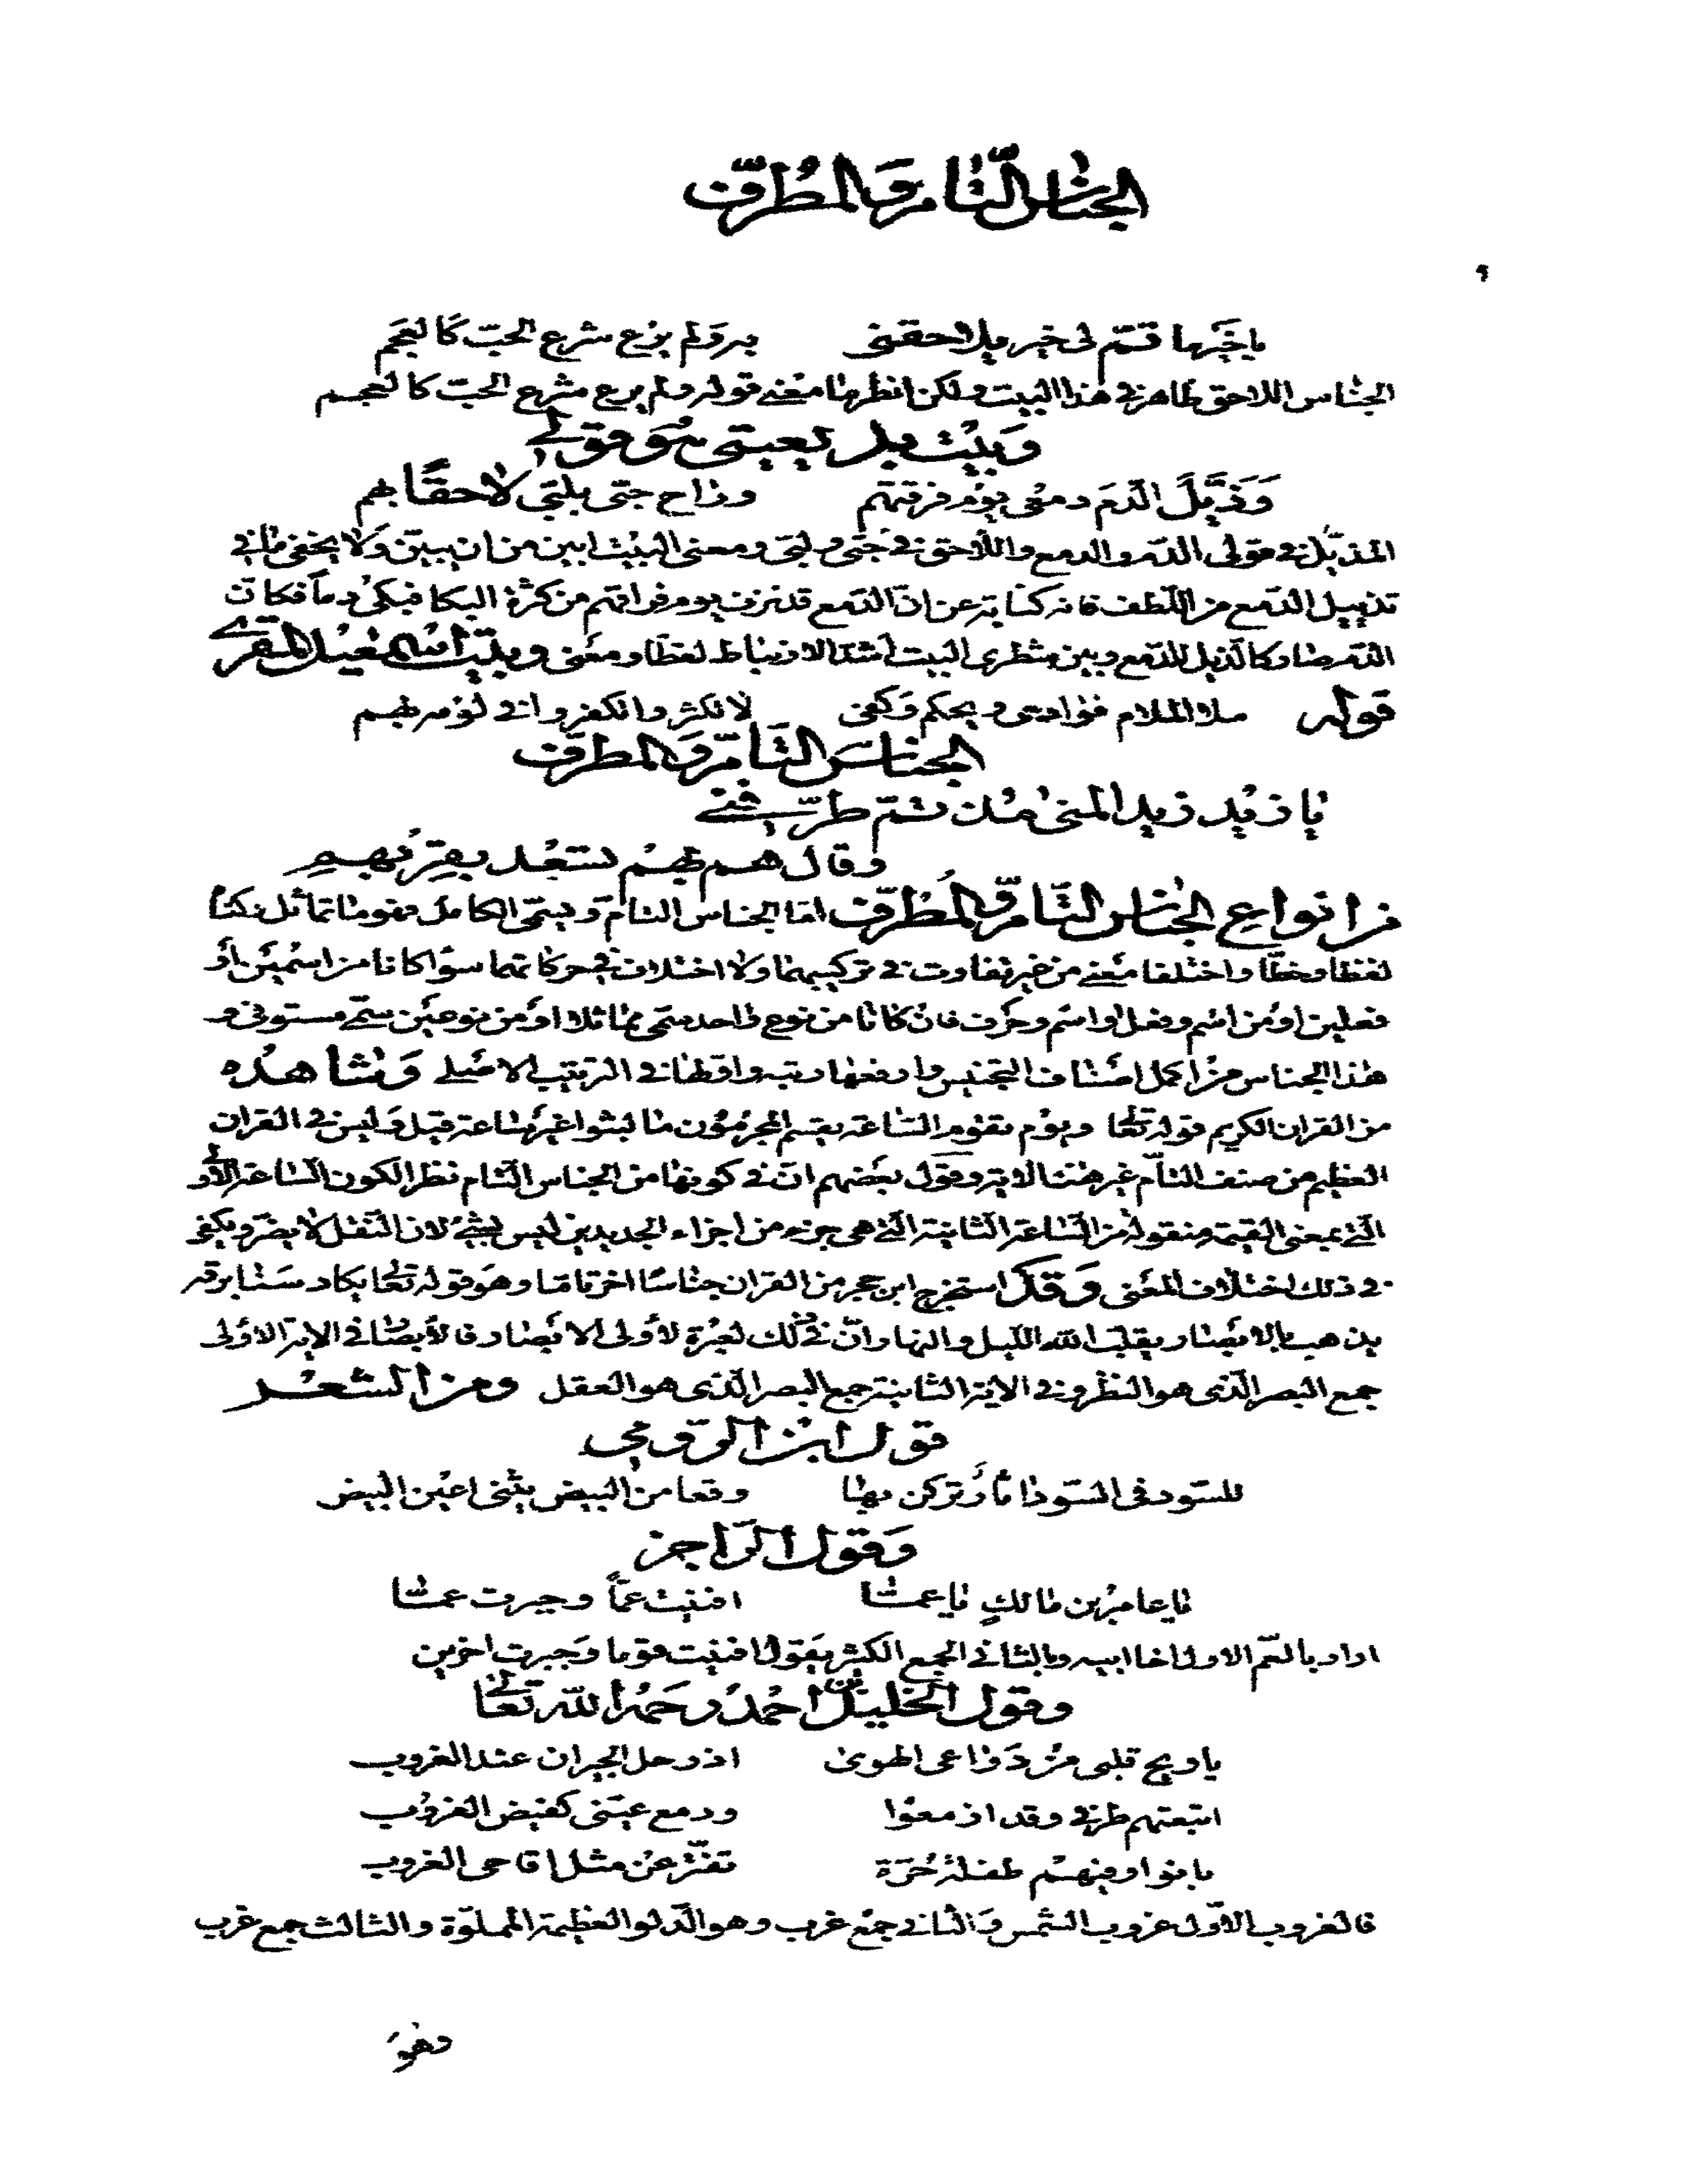 الجناس التام والمطرف
يا خيرها قسم لي خير بلاحقني يروي ولم يرع شرع الحب كالعجم
الجناس اللاحق ظاهر في هذا البيت ولكن انظر ما معنى قوله ولم يرع شرع الحب كالعجم
وبيت بديعيتي هو قولي
وذيل الدم دمعي يوم فرقتهم وراح حبي بلبي لاحقا بهم
المذيل في قولي الدم والدمع واللاحق في حبي ولبي ومعنى البيت ابين من ان يبين ولا يخفى ما في
تذييل الدمع من اللطف فانه كناية عن ان الدمع قد نزف يوم فراقهم من كثرة البكا فبكى دما فكان
الدم صار كالذيل للدمع وبين شطري البيت اشد الارتباط لفظا ومعنى وبيت اسمعيل المقري
قوله ملا الملام فؤادي ويحكم وكفى لا تكثروا تكفروا في لؤمر لهم
الجناس التام والمطرف
يا زيد زيد المنى مذ تم طرفني
وقال هم بهم تسعد بقربهم
من انواع الجناس التام والمطرف اما الجناس التام ويسمى الكامل فهو ما تماثل ركناه
لفظا وخطا واختلفا معنى من غير تفاوت في تركيبهما ولا اختلاف في حركاتهما سوا كانا من اسمين او
فعلين او من اسم وفعل او اسم وحرف فان كانا من نوع واحد سمي مماثلا او من نوعين سمى مستوفى و
هذا الجناس من اكمل اصناف التجنيس وارفعها رتبه واولها في الترتيب الاصلي وشاهده
من القران الكريم قوله تعالى ويوم تقوم الساعة يقسم المجرمون ما لبثوا غير ساعة قيل وليس في القران
العظيم من صنف التام غير هذه الاية وقول بعضهم ان في كونها من الجناس التام نظر الكون الساعة الاولى
التي بمعنى القيمة منقولة من الساعة الثانية التي هي جزء من اجزاء الجديدين ليس بشيء لان النقل لا يضر ويكفي
في ذلك اختلاف المعنى وقد استخرج ابن حجر من القران جناسا اخر تاما وهو قوله تعالى يكاد سنا برقه
يذهب بالابصار يقلب الله الليل والنهار ان في ذلك لعبرة لأولى الابصار فالأبصار في الاية الاولى
جمع البصر الذي هو النظر وفي الاية الثانية جمع البصر الذي هو العقل ومن الشعر
قول ابن الرومي
للسود في السود اثار تركن بها وقعا من البيض يثنى اعين البيض
وقول الراجز
يا عامر بن مالك يا عما افنيت عما وجبرت عما
اراد بالعم الاول اخا ابيه وبالثاني الجمع الكثير يقول افنيت قوما وجبرت اخرين
وقول الخليل بن احمد رحمه الله تعالى
يا ويح قلبي من دواعي الهوى اذ رحل الجيران عند الغروب
اتبعتهم طرفي وقد ازمعوا ودمع عيني كفيض الغروب
بانوا وفيهم طفلة حرة تفتر عن مثل اقاحي الغروب
فالغروب الاول غروب الشمس والثاني جمع غرب وهو الدلو العظيمة المملوة والثالث جمع غرب
وهو